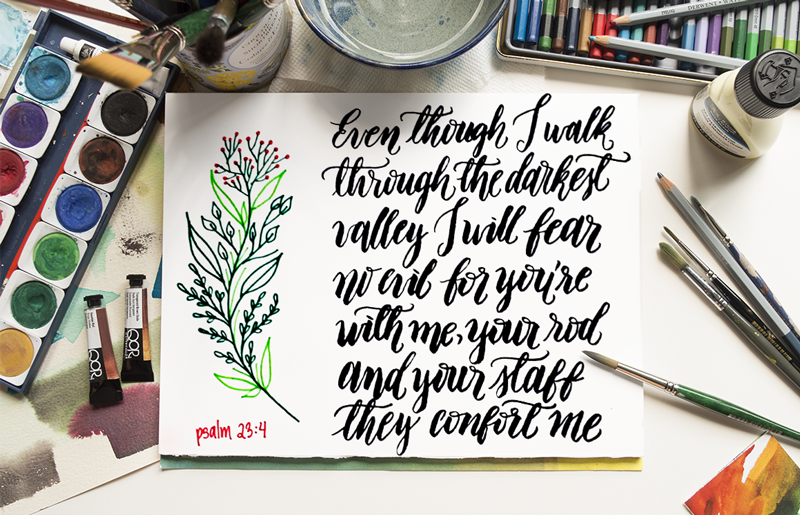 DERWENT
QOR
QOR
Even though I walk
through the darkest
valley I will fear
no evil for you're
with me, your rod
and your staff
they confort me
psalm 23:4